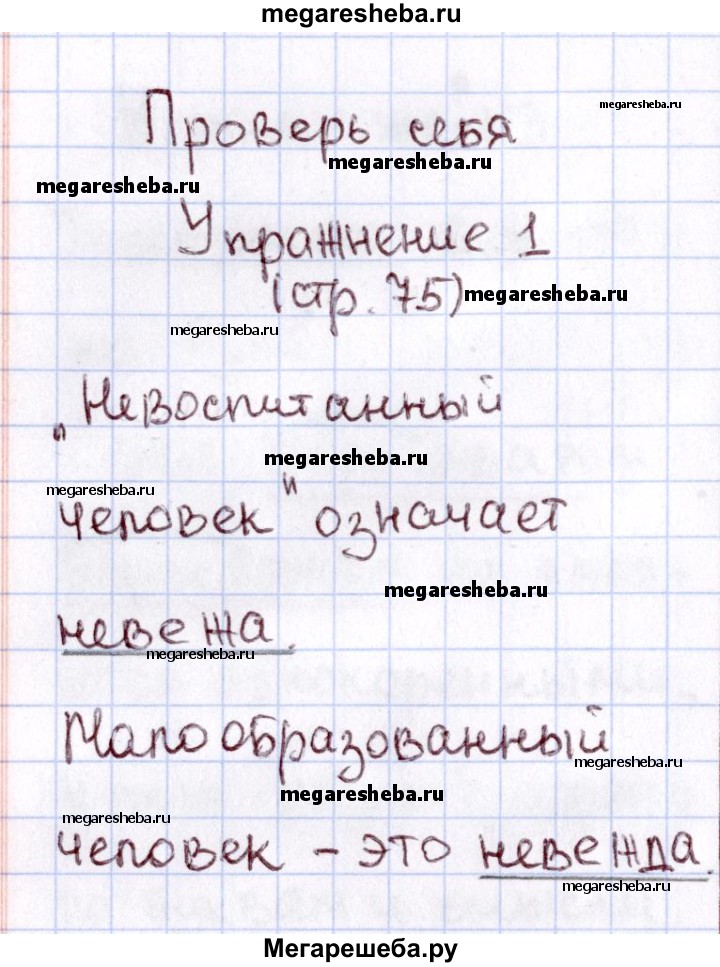 megaresheba.ru
megaresheba.ru
Проверь себя
megaresheba.ru
megaresheba.ru
Упражнение 1
(стр. 75)
megaresheba.ru
megaresheba.ru
„Невоспитанный
megaresheba.ru
megaresheba.ru
человек" означает
megaresheba.ru
невежа.
megaresheba.ru
Малообразованный
megaresheba.ru
megaresheba.ru
megaresheba.ru
человек – это невежда.
megaresheba.ru
Мегарешеба.ру